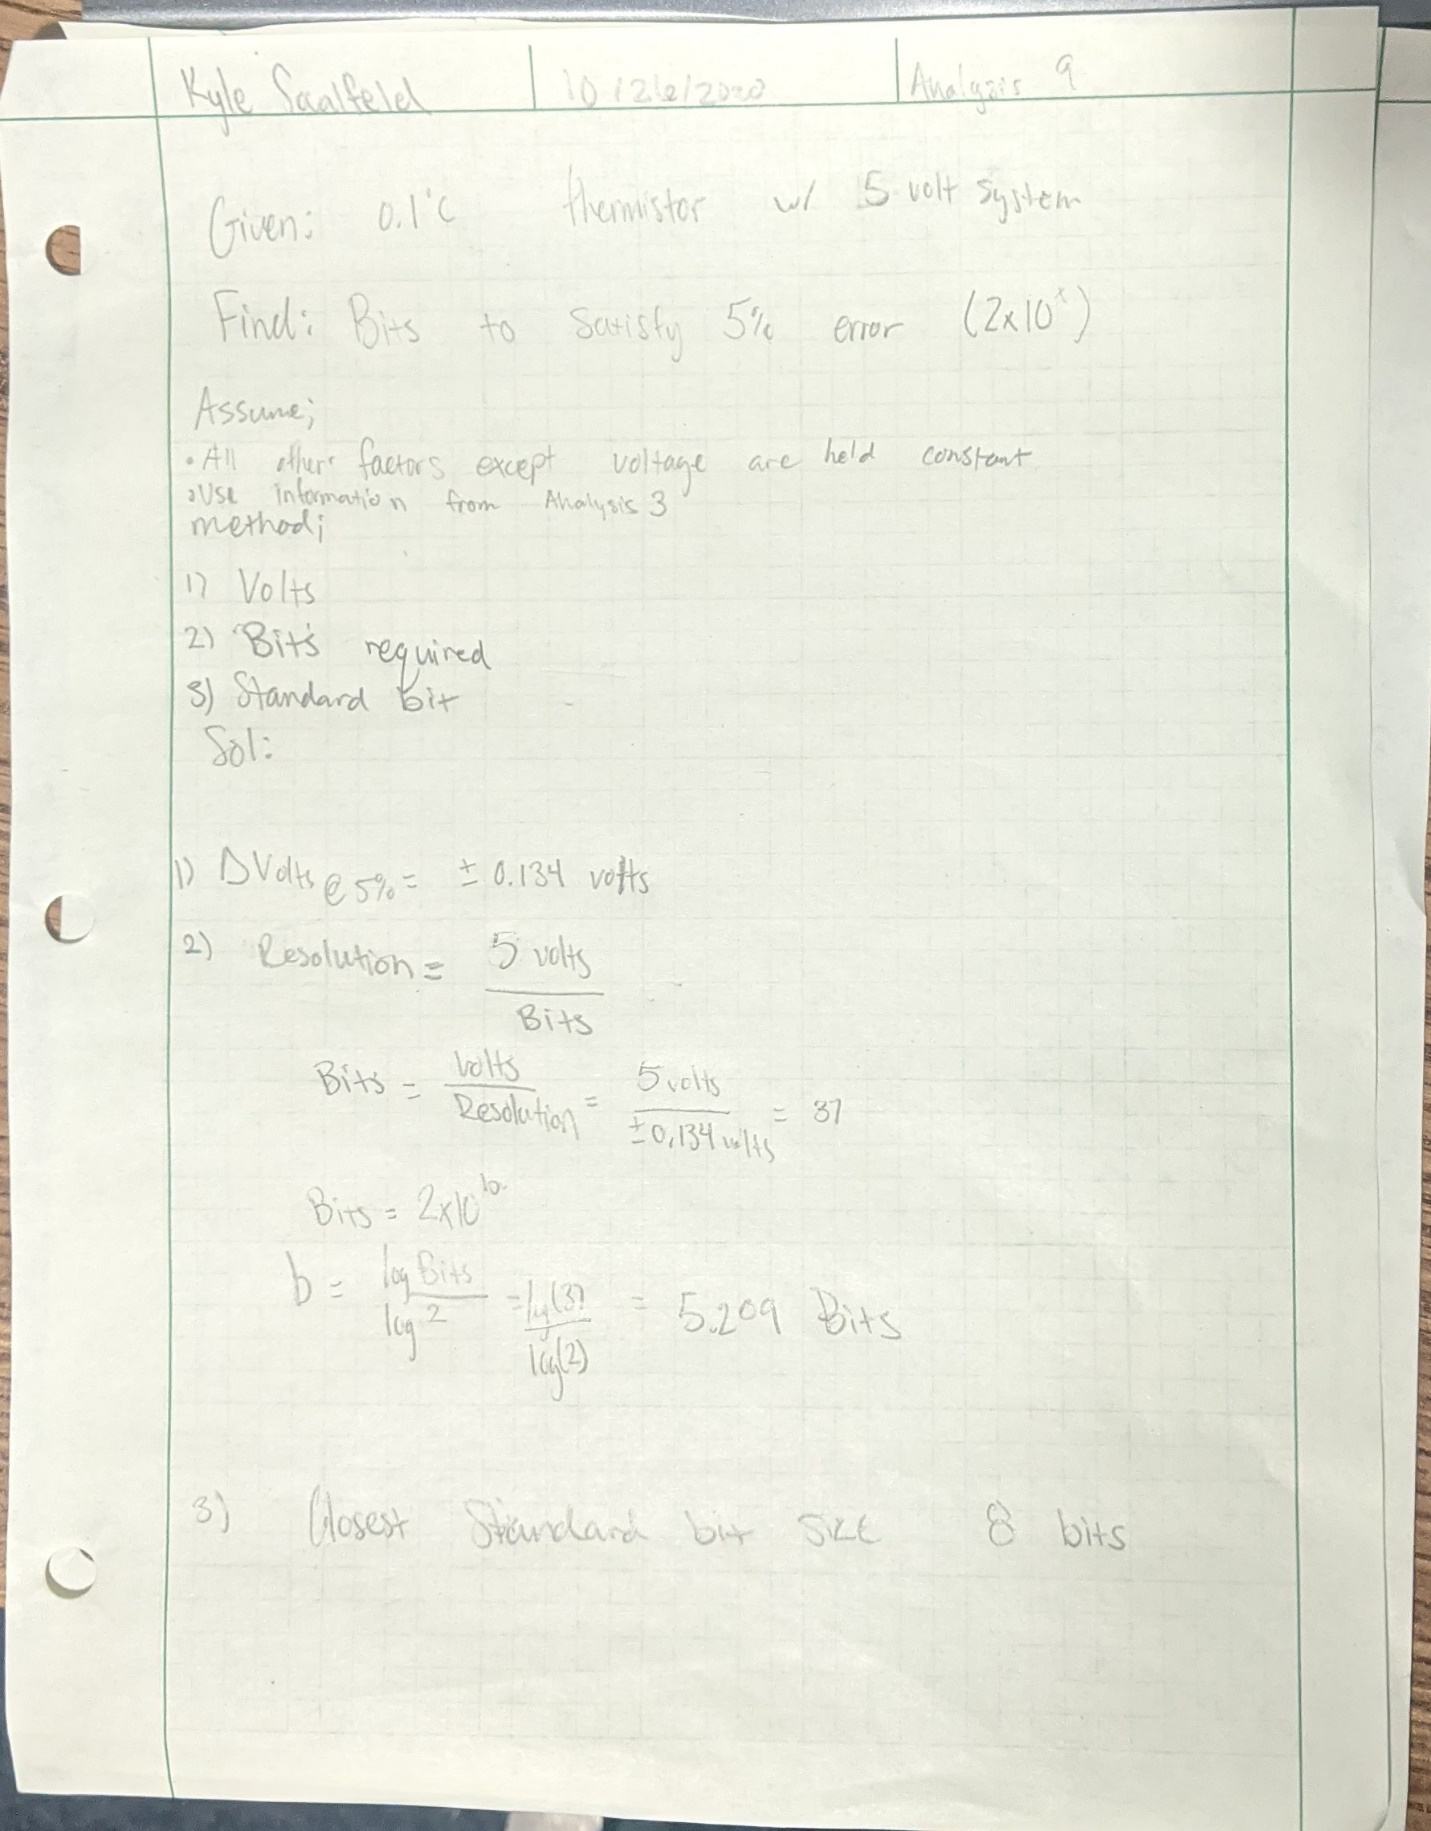 Kyle Saalfeld 10/26/2020 Analysis 9
Given: 0.1°C thermistor w/ 5 volt system
Find: Bits to satisfy 5% error (2x10^x)
Assume;
• All other factors except voltage are held constant
• Use information from Analysis 3
method;
1) Volts
2) Bits required
3) Standard bit
Sol:
1) ΔVolts @ 5% = ± 0.134 volts
2) Resolution = 5 volts / Bits
Bits = Volts / Resolution = 5 volts / ±0.134 volts = 37
Bits = 2x10^b
b = log Bits / log 2 = log(37 / log(2) = 5.209 Bits
3) Closest Standard bit size 8 bits